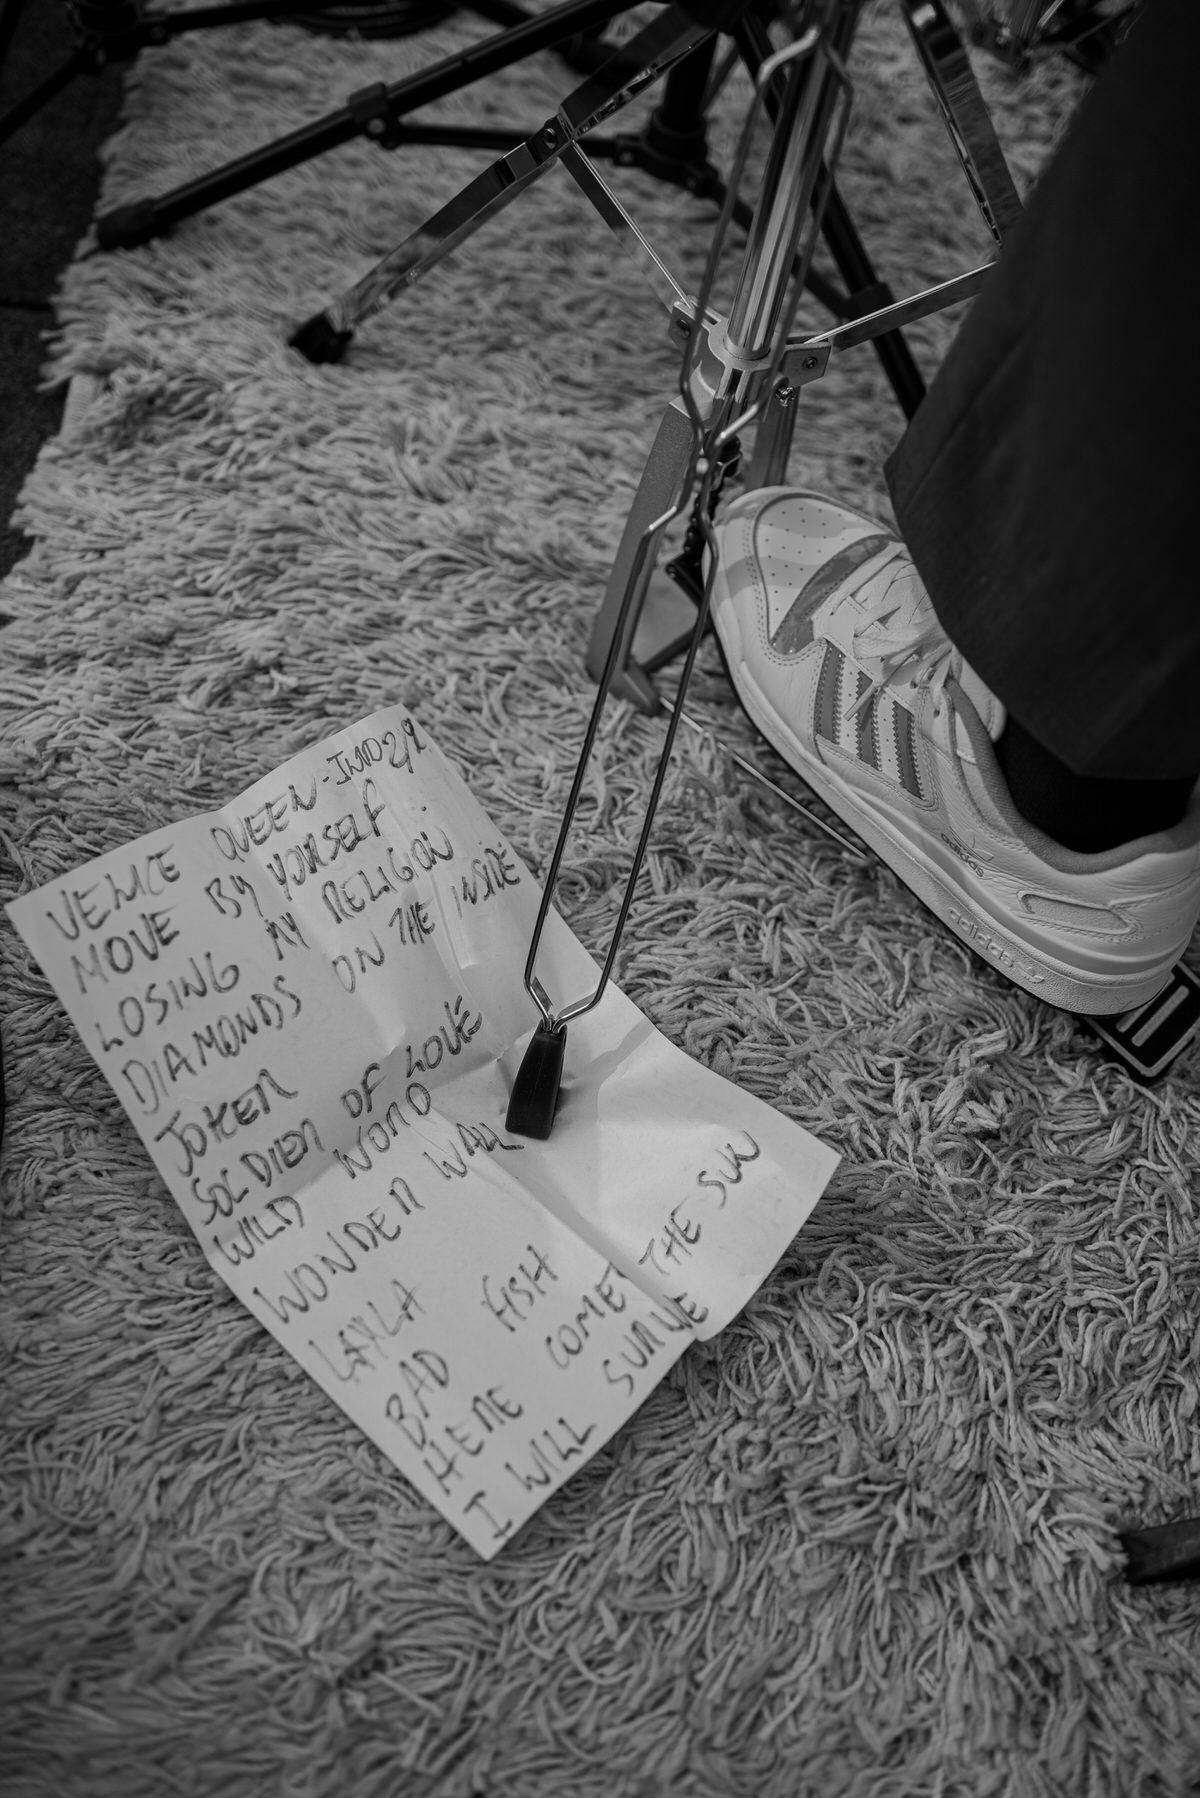 VENICE QUEEN - IND29
MOVE BY YOURSELF
LOSING MY RELIGION
DIAMONDS ON THE INSIDE
JOKER
SOLDIER OF LOVE
WILD WORD
WONDER WALL
LAYLA
BAD FISH
HERE COMES THE SUN
I WILL SURVIVE
adidas
adidas